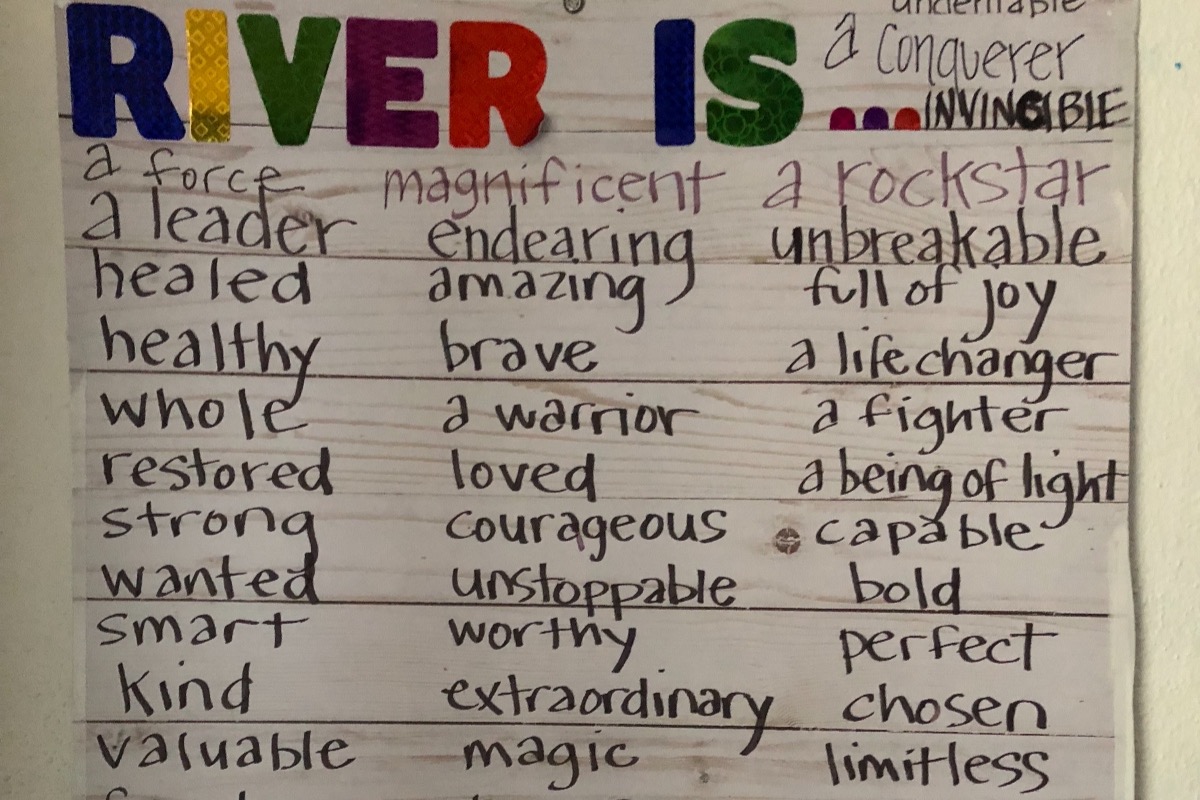 undeniable
a conquerer
RIVER IS ... INVINCIBLE
a force magnificent a rockstar
a leader endearing unbreakable
healed amazing full of joy
healthy brave a life changer
whole a warrior a fighter
restored loved a being of light
strong courageous capable
wanted unstoppable bold
smart worthy perfect
kind extraordinary chosen
valuable magic limitless